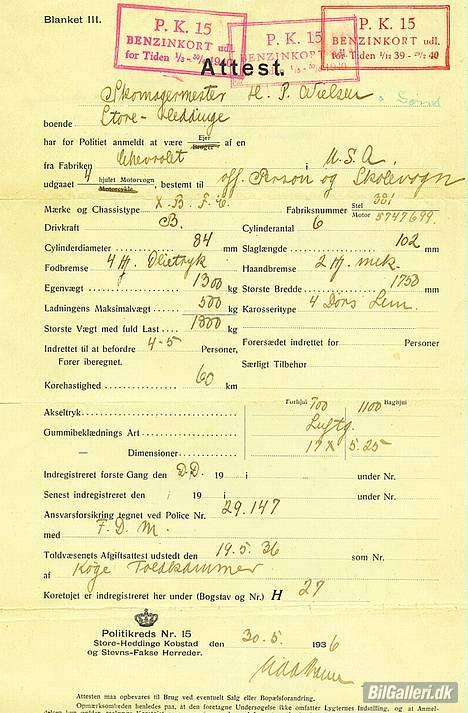 Blanket III.
P. K. 15
BENZINKORT udl.
for Tiden
P. K. 15
BENZINKORT udl.
P. K. 15
BENZINKORT udl.
for Tiden 1/11 39 - 40
Attest.
Skomagermester H. P. Nielsen
boende Store-Heddinge
har for Politiet anmeldt at være Ejer Bruger af en
fra Fabriken Chevrolet i U.S.A.
udgaaet 4 hjulet Motorvogn Motorcykle, bestemt til off. Person og Skolevogn
Mærke og Chassistype X. B. F. 6. Fabriksnummer Stel 381 Motor 5747699.
Drivkraft B. Cylinderantal 6
Cylinderdiameter 84 mm Slaglængde 102 mm
Fodbremse 4 Hj. Olietryk Haandbremse 2 Hj. mek.
Egenvægt 1300 kg Største Bredde 1750 mm
Ladningens Maksimalvægt 500 kg Karosseritype 4 Dörs Lim.
Største Vægt med fuld Last 1800 kg
Indrettet til at befordre 4-5 Personer, Forersædet indrettet for Personer
Fører iberegnet. Særligt Tilbehør
Kørehastighed 60 km
Forhjul 700 Baghjul 1100
Akseltryk
Gummibeklædnings Art Luftg.
— Dimensioner 17 x 5.25
Indregistreret første Gang den D.D. 19 i under Nr.
Senest indregistreret den i 19 i under Nr.
Ansvarsforsikring tegnet ved Police Nr. 29.147
med F. D. M.
Toldvæsenets Afgiftsattest udstedt den 19.5.36 som Nr.
af Køge Toldkammer
Køretøjet er indregistreret her under (Bogstav og Nr.) H 27
Politikreds Nr. 15
Store-Heddinge Købstad
og Stevns-Fakse Herreder.
den 30.5. 1936
Attesten maa opbevares til Brug ved eventuelt Salg eller Bopælsforandring.
Opmærksomheden henledes paa, at den foretagne Undersøgelse ikke omfatter Lygternes Indstilling, og at Anmel-
BilGalleri.dk